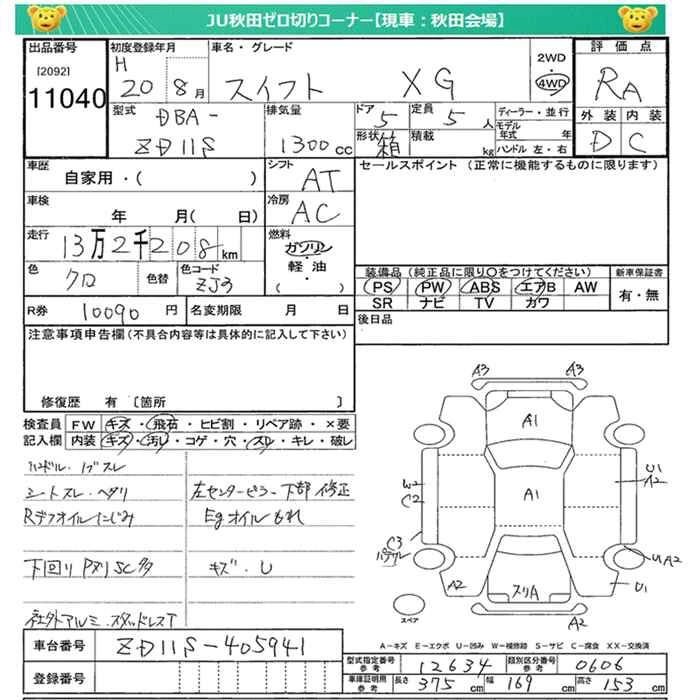 JU秋田ゼロ切りコーナー【現車：秋田会場】
出品番号
[2092]
11040
初度登録年月
H 20 8月
車名・グレード
スイフト XG
2WD
・
4WD
評価点
RA
外装 内装
D C
型式
DBA-
ZD11S
排気量
1300cc
ドア
5
定員
5人
形状
箱
積載
kg
ディーラー・並行
モデル年式 年
ハンドル 左・右
車歴
自家用・( )
シフト
AT
セールスポイント (正常に機能するものに限ります)
車検
年 月( 日)
冷房
AC
走行
13万2千208km
燃料
ガソリン
・
軽・油
・
( )
色
クロ
色替
色コード
ZJ3
装備品 (純正品に限り○をつけてください)
新車保証書
PS PW ABS エアB AW
SR ナビ TV カワ
有・無
R券
10090円
名変期限 月 日
後日品
注意事項申告欄(不具合内容等は具体的に記入して下さい)
修復歴 有〔箇所 〕
検査員
記入欄
FW キズ・飛石・ヒビ割・リペア跡・×要
内装 キズ・汚レ・コゲ・穴・スレ・キレ・破レ
ハンドル・ノブスレ
シートスレ・ヘタリ
左センターピラー下部修正
Rデフオイルにじみ
Egオイルもれ
下回りPメリSC多
キズ・U
社外アルミ・スタッドレスT
A3 A3
A1
W2
C2
A1
U1
A2
C3
U1A2
A2
スリA
U1
A2
スペア
A-キズ E-エクボ U-凹み W-補修跡 S-サビ C-腐食 XX-交換済
車台番号
ZD11S-405941
登録番号
型式指定番号
参考
12634
類別区分番号
参考
0606
車庫証明用
参考
長さ 375cm 幅 169cm 高さ 153cm